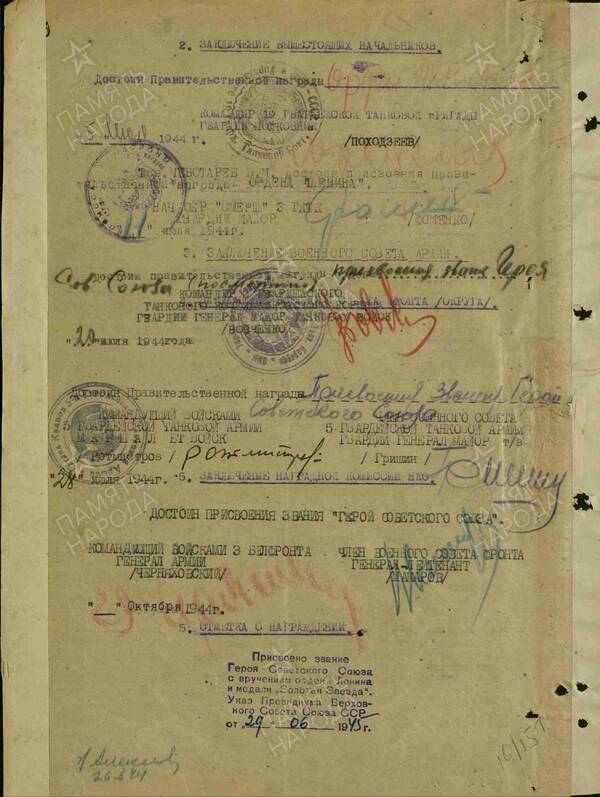 2. ЗАКЛЮЧЕНИЕ ВЫШЕСТОЯЩИХ НАЧАЛЬНИКОВ.
Достоин Правительственной награды
КОМАНДИР 19 ГВАРДЕЙСКОЙ ТАНКОВОЙ БРИГАДЫ
ГВАРДИИ ПОЛКОВНИК
1944 г. /ПОХОДЗЕЕВ/
Тов. ЧЕБОТАРЕВ В.М. достоин присвоения прави-
тельственной награды ОРДЕНА "ЛЕНИНА".
НАЧ. ОКР "СМЕРШ" 3 ГКТК
ГВАРДИИ МАЙОР /СОМЕНКО/
"11" июля 1944г.
3. ЗАКЛЮЧЕНИЕ ВОЕННОГО СОВЕТА АРМИИ.
достоин правительственной награды присвоения звания Героя
Сов Союза (посмертно)
КОМАНДИР 3 ГВАРДЕЙСКОГО
ТАНКОВОГО ФРОНТА /ОКРУГА/.
ГВАРДИИ ГЕНЕРАЛ МАЙОР ТАНКОВЫХ ВОЙСК
/ВОВЧЕНКО/
"20" июля 1944года
Достоин Правительственной награды Присвоения Звания Герой
Советского Союза
КОМАНДУЮЩИЙ ВОЙСКАМИ ВОЕННОГО СОВЕТА
5 ГВАРДЕЙСКОЙ ТАНКОВОЙ АРМИИ 5 ГВАРДЕЙСКОЙ ТАНКОВОЙ АРМИИ
МАРШАЛ БТ ВОЙСК ГВАРДИИ ГЕНЕРАЛ МАЙОР т/в
/Ротмистров/ / Гришин /
"28" июля 1944г. 5. ЗАКЛЮЧЕНИЕ НАГРАДНОЙ КОМИССИИ НКО.
ДОСТОИН ПРИСВОЕНИЯ ЗВАНИЯ "ГЕРОЙ СОВЕТСКОГО СОЮЗА".
КОМАНДУЮЩИЙ ВОЙСКАМИ 3 БЕЛФРОНТА ЧЛЕН ВОЕННОГО СОВЕТА ФРОНТА
ГЕНЕРАЛ АРМИИ ГЕНЕРАЛ-ЛЕЙТЕНАНТ
/ЧЕРНЯХОВСКИЙ/ /МАКАРОВ/
"__" Октября 1944г.
5. ОТМЕТКА О НАГРАЖДЕНИИ.
Присвоено звание
Героя Советского Союза
с вручением ордена Ленина
и медали „Золотая Звезда".
Указ Президиума Верхов-
ного Совета Союза ССР
от „29" 06 1945г.
ПАМЯТЬ НАРОДА